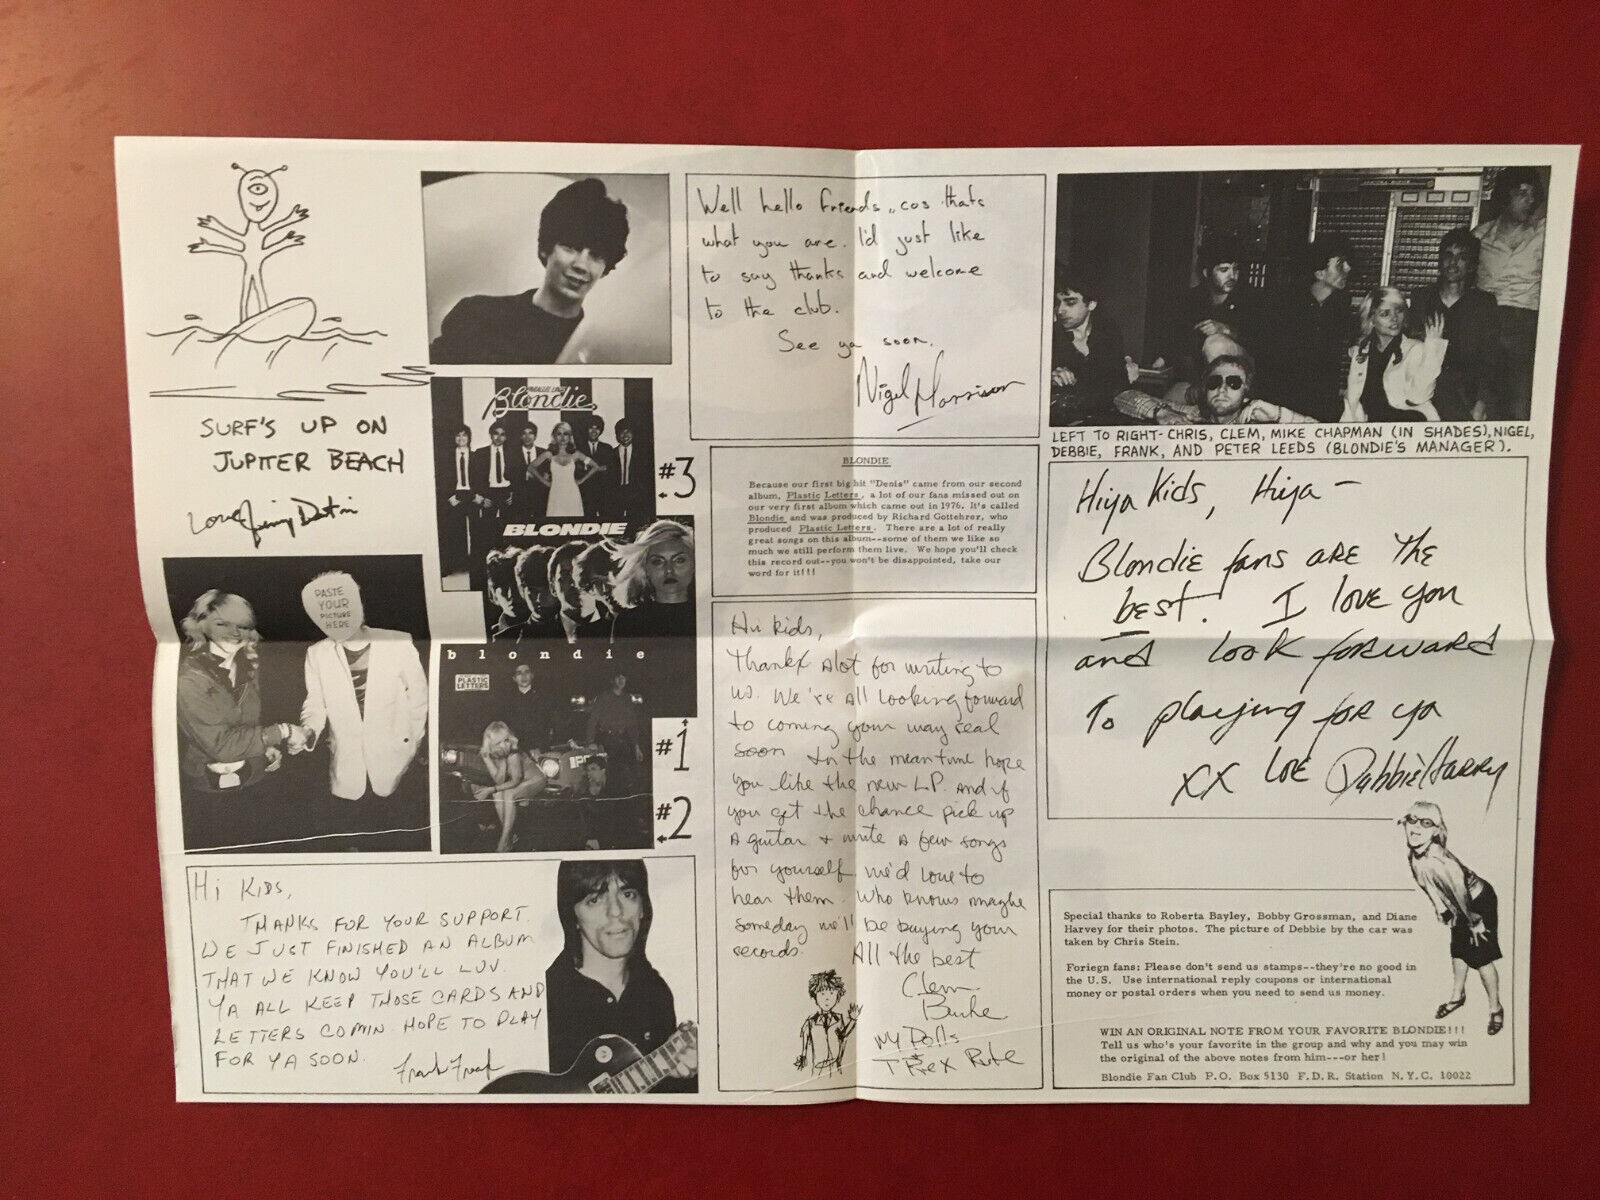 SURF'S UP ON
JUPITER BEACH
Love, Jimmy Destri
PASTE
YOUR
PICTURE
HERE
PARALLEL LINES
Blondie
#3
BLONDIE
blondie
PLASTIC
LETTERS
#1
#2
HI KIDS,
THANKS FOR YOUR SUPPORT.
WE JUST FINISHED AN ALBUM
THAT WE KNOW YOU'LL LUV.
YA ALL KEEP THOSE CARDS AND
LETTERS COMIN. HOPE TO PLAY
FOR YA SOON.
Frank Freak
Well hello friends, cos thats
what you are. I'd just like
to say thanks and welcome
to the club.
See ya soon.
Nigel Harrison
BLONDIE
Because our first big hit "Denis" came from our second
album, Plastic Letters, a lot of our fans missed out on
our very first album which came out in 1976. It's called
Blondie and was produced by Richard Gottehrer, who
produced Plastic Letters. There are a lot of really
great songs on this album--some of them we like so
much we still perform them live. We hope you'll check
this record out--you won't be disappointed, take our
word for it!!!
kids,
Thanks alot for writing to
us. We're all looking forward
to coming your way real
soon In the meantime hope
you like the new L.P. and if
you get the chance pick up
a guitar + write a few songs
for yourself we'd love to
hear them. Who knows maybe
someday we'll be buying your
records.
All the best
Clem
Burke
NY Dolls
T Rex Rule
LEFT TO RIGHT- CHRIS, CLEM, MIKE CHAPMAN (IN SHADES), NIGEL,
DEBBIE, FRANK, AND PETER LEEDS (BLONDIE'S MANAGER).
Hiya Kids, Hiya —
Blondie fans are the
best. I love you
and look forward
To playing for ya
XX love Debbie Harry
Special thanks to Roberta Bayley, Bobby Grossman, and Diane
Harvey for their photos. The picture of Debbie by the car was
taken by Chris Stein.
Foriegn fans: Please don't send us stamps--they're no good in
the U.S. Use international reply coupons or international
money or postal orders when you need to send us money.
WIN AN ORIGINAL NOTE FROM YOUR FAVORITE BLONDIE!!!
Tell us who's your favorite in the group and why and you may win
the original of the above notes from him---or her!
Blondie Fan Club P.O. Box 5130 F.D.R. Station N.Y.C. 10022